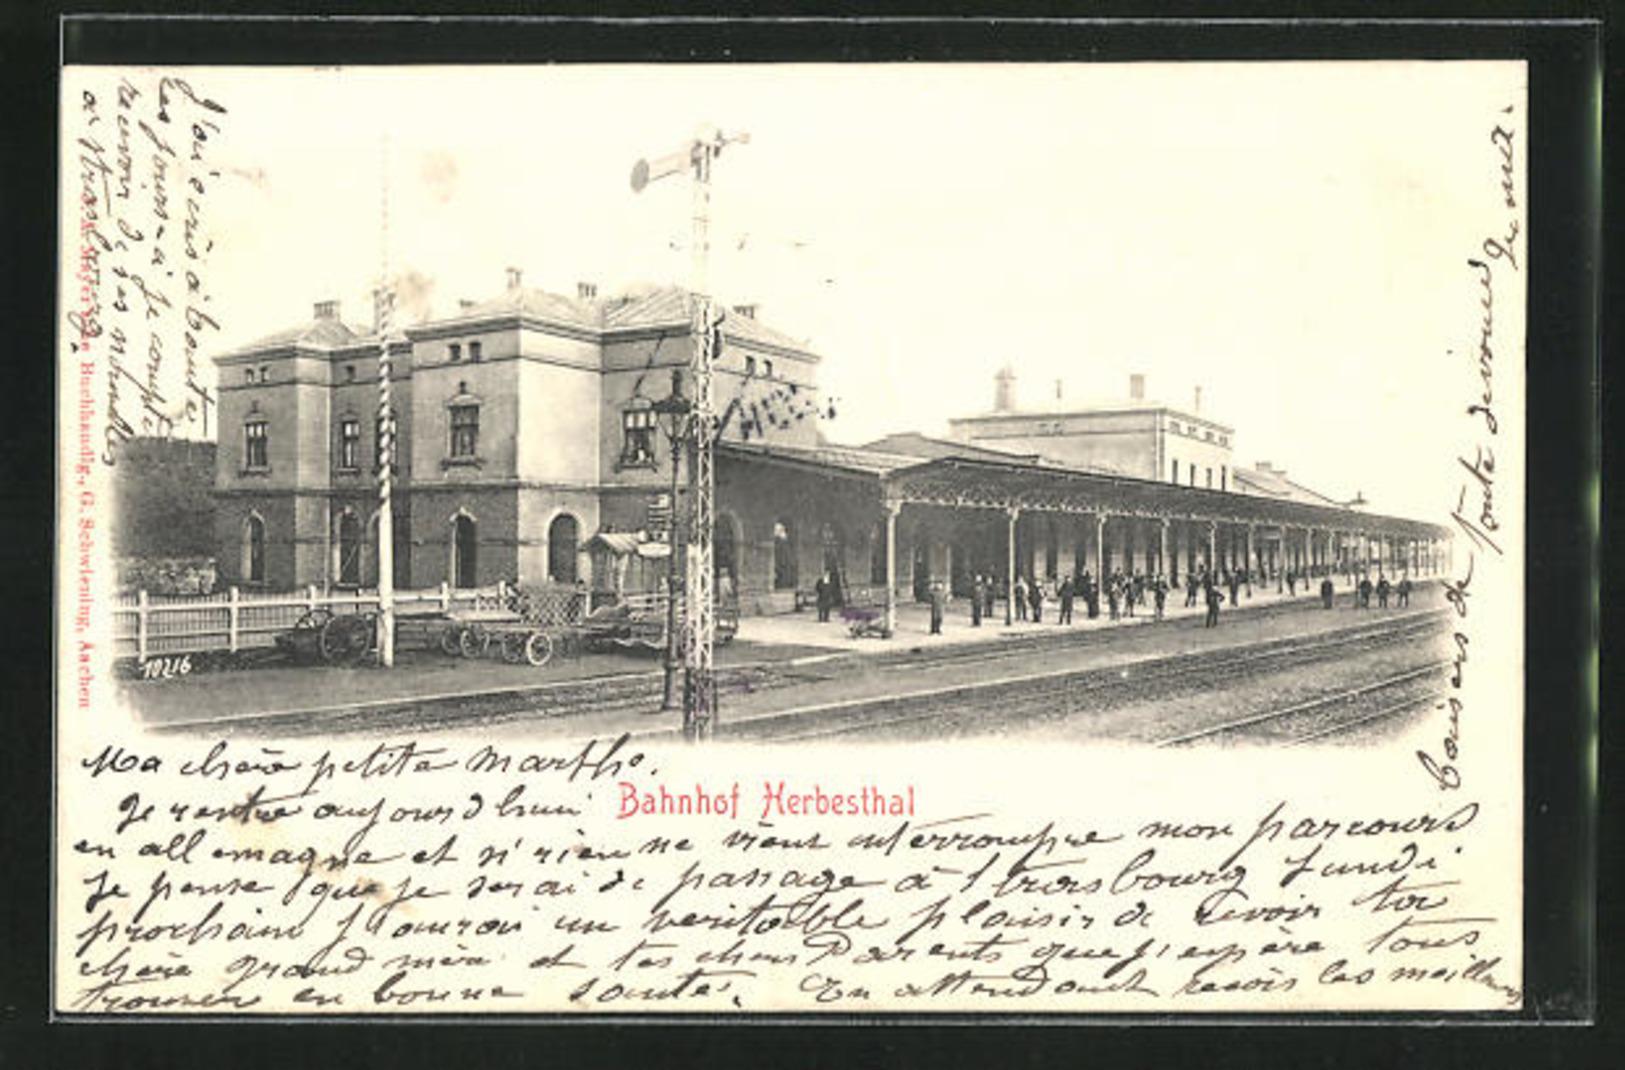 J'ai ecris à
les jours-ci je compte
recevoir de ses nouvelles
à strasbourg.
Mayer'sche Buchhandlg., G. Schwiening, Aachen
10216
Ma chère petite Marthe.
Bahnhof Herbesthal
Je rentre aujourd'hui
en allemagne et si rien ne vient interrompre mon parcours
Je pense que je serai de passage à Strasbourg Lundi
prochain J'aurai un veritable plaisir de revoir ta
chère grand mère et tes chers Parents que j'espère tous
trouver en bonne santé. En attendant reçois les meilleurs
baisers de toute devouée